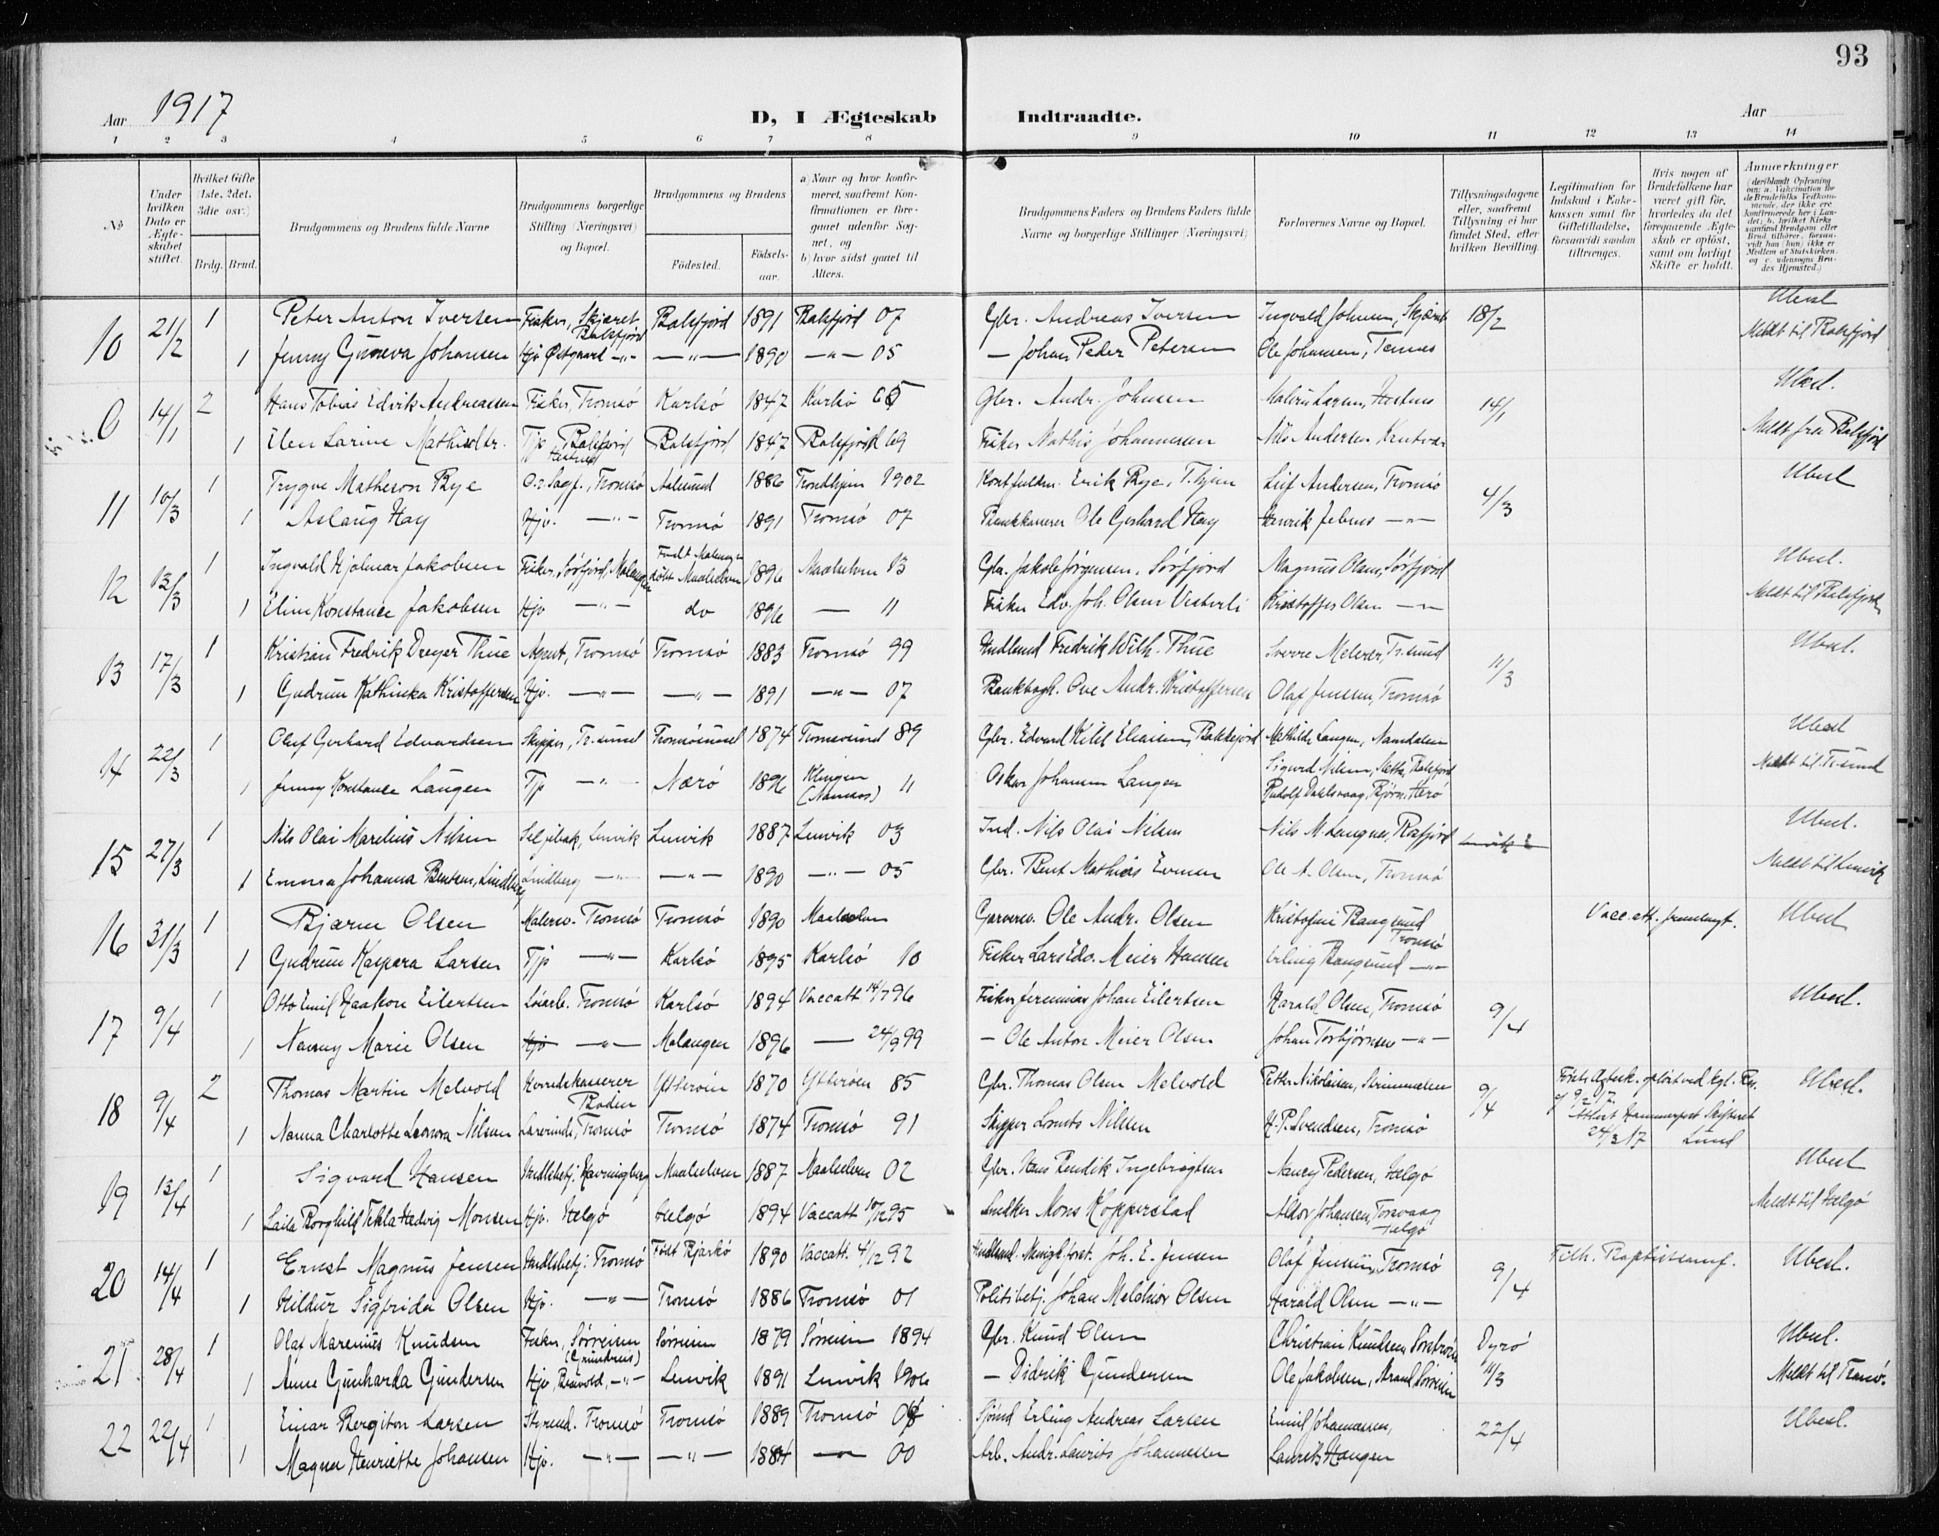 93
Aar 1917 D, I Ægteskab Indtraadte. Aar
1 2 3 4 5 6 7 8 9 10 11 12 13 14
№
Under hvilken Dato er Ægteskabet stiftet.
Hvilket Gifte (1ste, 2det, 3die osv.)
Brdg. Brud.
Brudgommens og Brudens fulde Navne
Brudgommens borgerlige Stilling (Næringsvei) og Bopæl.
Brudgommens og Brudens
Fødested. Fødselsaar.
a) Naar og hvor konfirmeret, saafremt Konfirmationen er foregaaet udenfor Sognet, og
b) hvor sidst gaaet til Alters.
Brudgommens Faders og Brudens Faders fulde Navne og borgerlige Stillinger (Næringsvei)
Forlovernes Navne og Bopæl.
Tillysningsdagene eller, saafremt Tillysning ei har fundet Sted, efter hvilken Bevilling.
Legitimation for Indskud i Enkekassen samt for Giftetilladelse, forsaavidt saadan tiltrænges.
Hvis nogen af Brudefolkene har været gift før, hvorledes da det foregaaende Ægteskab er opløst, samt om lovligt Skifte er holdt.
Anmærkninger
10 21/2 1 Peter Anton Iversen Fisker, Skjæret Balsfjord Balsfjord 1891 Balsfjord 07 Gbr. Andreas Iversen Ingvald Johnsen, Skjæret 18/2 Ubesl
1 Jenny Guneva Johansen Hjv Østgaard -"- -"- 1890 -"- 05 - Johan Peder Petersen Ole Johansen, Tennes Meldt til Balsfjord
0 14/1 2 Hans Tobias Edvik Andreassen Fisker, Tromsø Karlsø 1847 Karlsø 65 Gbr. Andr. Johnsen 14/1 Ubesl.
1 Elen Larine Mathisdtr. Tjp Balsfjord Balsfjord 1847 Balsfjord 69 Fisker Mathis Johannesen Nils Andersen Meldt fra Balsfjord
11 10/3 1 Trygve Matheson Bye O.r.Sagf., Tromsø Aalesund 1886 Trondhjem 1902 Kontfuldm. Erik Bye, T.hjem Leif Andersen, Tromsø 4/3 Ubesl
1 Aslaug Hay Hjv. -"- Tromsø 1891 Tromsø 07 Bankkaserer Ole Gerhard Hay Henrik Jebens -"-
12 13/3 1 Ingvald Hjalmar Jakobsen Fisker, Sørfjord, Malangen Født Malangen døbt Maalselven 1896 Maalselven 13 Gbr. Jakob Jørgensen, Sørfjord Magnus Olsen, Sørfjord Ubesl.
1 Eline Konstance Jakobsen Hjv -"- do 1896 - 11 Fisker Edv. Joh. Olsen Vesterli Kristoffer Olsen -"- Meldt til Balsfjord
13 17/3 1 Kristian Fredrik Dreyer Thue Agent, Tromsø Tromsø 1883 Tromsø 99 Handlsmd Fredrik Wilh. Thue Sverre Melvær, Tr.sund 11/3 Ubesl.
1 Gudrun Kathinka Kristoffersen Hjv. -"- -"- 1891 -"- 07 Bankbogh. Ove Andr. Kristoffersen Olaf Jensen, Tromsø
14 22/3 1 Oluf Gerhard Edvardsen Skipper, Tr.sund Tromsøsund 1874 Tromsøsund 89 Gbr. Edvard Kild Eliasen, Bakkejord Mathilde Langen, Namdalen Ubesl
1 Jenny Konstance Langen Tjp -"- Nærø 1896 Klingen (Namsos) 11 Oskar Johansen Langen Sigurd Nilsen, Balsfjord Meldt til Tr.sund
Rudolf Dahlsvaag, Bjørn, Herø
15 27/3 1 Nils Olai Marelius Nilsen Lenvik Lenvik 1887 Lenvik 03 Ind. Nils Olai Nilsen Nils M. Langnes, Rafjord Ubesl.
1 Emma Johanna Bentsen, Lindberg Lindberg -"- -"- 1890 -"- 05 Gbr. Bent Mathias Evensen Ole A. Olsen, Tromsø Meldt til Lenvik
16 31/3 1 Bjarne Olsen Malersv. Tromsø Tromsø 1890 Maalselven Garversv. Ole Andr. Olsen Kristofine Bangsund Tromsø Vacc.att. fremlagt. Ubesl
1 Gudrun Kaspara Larsen Tjp -"- Karlsø 1895 Karlsø 10 Fisker Lars Edv. Meier Hansen Erling Bangsund -"-
17 9/4 1 Otto Emil Haakon Eilertsen Løsarb. Tromsø Karlsø 1894 Vaccatt 14/7 96 Fisker Jeremias Johan Eilertsen Harald Olsen, Tromsø 9/4 Ubesl.
1 Nanny Marie Olsen Hjv -"- Malangen 1896 - 24/9 99 - Ole Anton Meier Olsen Johan Torbjørnsen -"-
18 9/4 2 Thomas Martin Melvold Bodin Ytterøen 1870 Ytterøen 85 Gbr. Thomas Olsen Melvold Petter Nikolaisen, 9/4 Ubesl.
1 Nanna Charlotte Leonora Nilsen Lærerinde, Tromsø Tromsø 1874 Tromsø 91 Skipper Lornts Nilsen H.P. Svendsen, Tromsø Attest Hammerfest Skifteret 24/3 17 Lund
19 13/4 1 Sigvard Hansen Handlsbetj. Havningberg Maalselven 1887 Maalselven 02 Gbr. Hans Bendik Ingebrigtsen Nancy Pedersen, Helgø Ubesl
1 Laila Borghild Tekla Hedvig Monsen Hjv. Helgø Helgø 1894 Vaccatt 10/12 95 Mons Kopperstad Aldor Johansen, Torsvaag Helgø Meldt til Helgø
20 14/4 1 Ernst Magnus Jensen Handlsbetj. Tromsø Født Bjarkø 1890 Vaccatt. 4/12 92 Joh. E. Jensen Olaf Jensen, Tromsø 9/4 Tilh. Baptistsamf. Ubesl.
1 Hildur Sigfrida Olsen Hjv. -"- Tromsø 1886 Tromsø 01 Politibetj. Johan Melchior Olsen Harald Olsen -"-
21 28/4 1 Olaf Marenius Knudsen Fisker, Sørreisen Sørreisen 1879 Sørreisen 1894 Gbr. Knud Olsen Christian Knudsen Dyrø Ubesl.
1 Anne Gunharda Gundersen Hjv, -"- Lenvik 1891 Lenvik 1906 - Didrik Gundersen Ole Jakobsen, Strand, Sørreisen 11/3 Meldt til Tranø.
22 22/4 1 Einar Bergiton Larsen Styrmd. Tromsø Tromsø 1889 Tromsø 04 Sjømd Erling Andreas Larsen Emil Johannessen, 22/4 Ubesl.
1 Magna Henriette Johansen Hjv. -"- -"- 1884 -"- 00 Arb. Andr. Laurits Johannessen Laurits Haugen